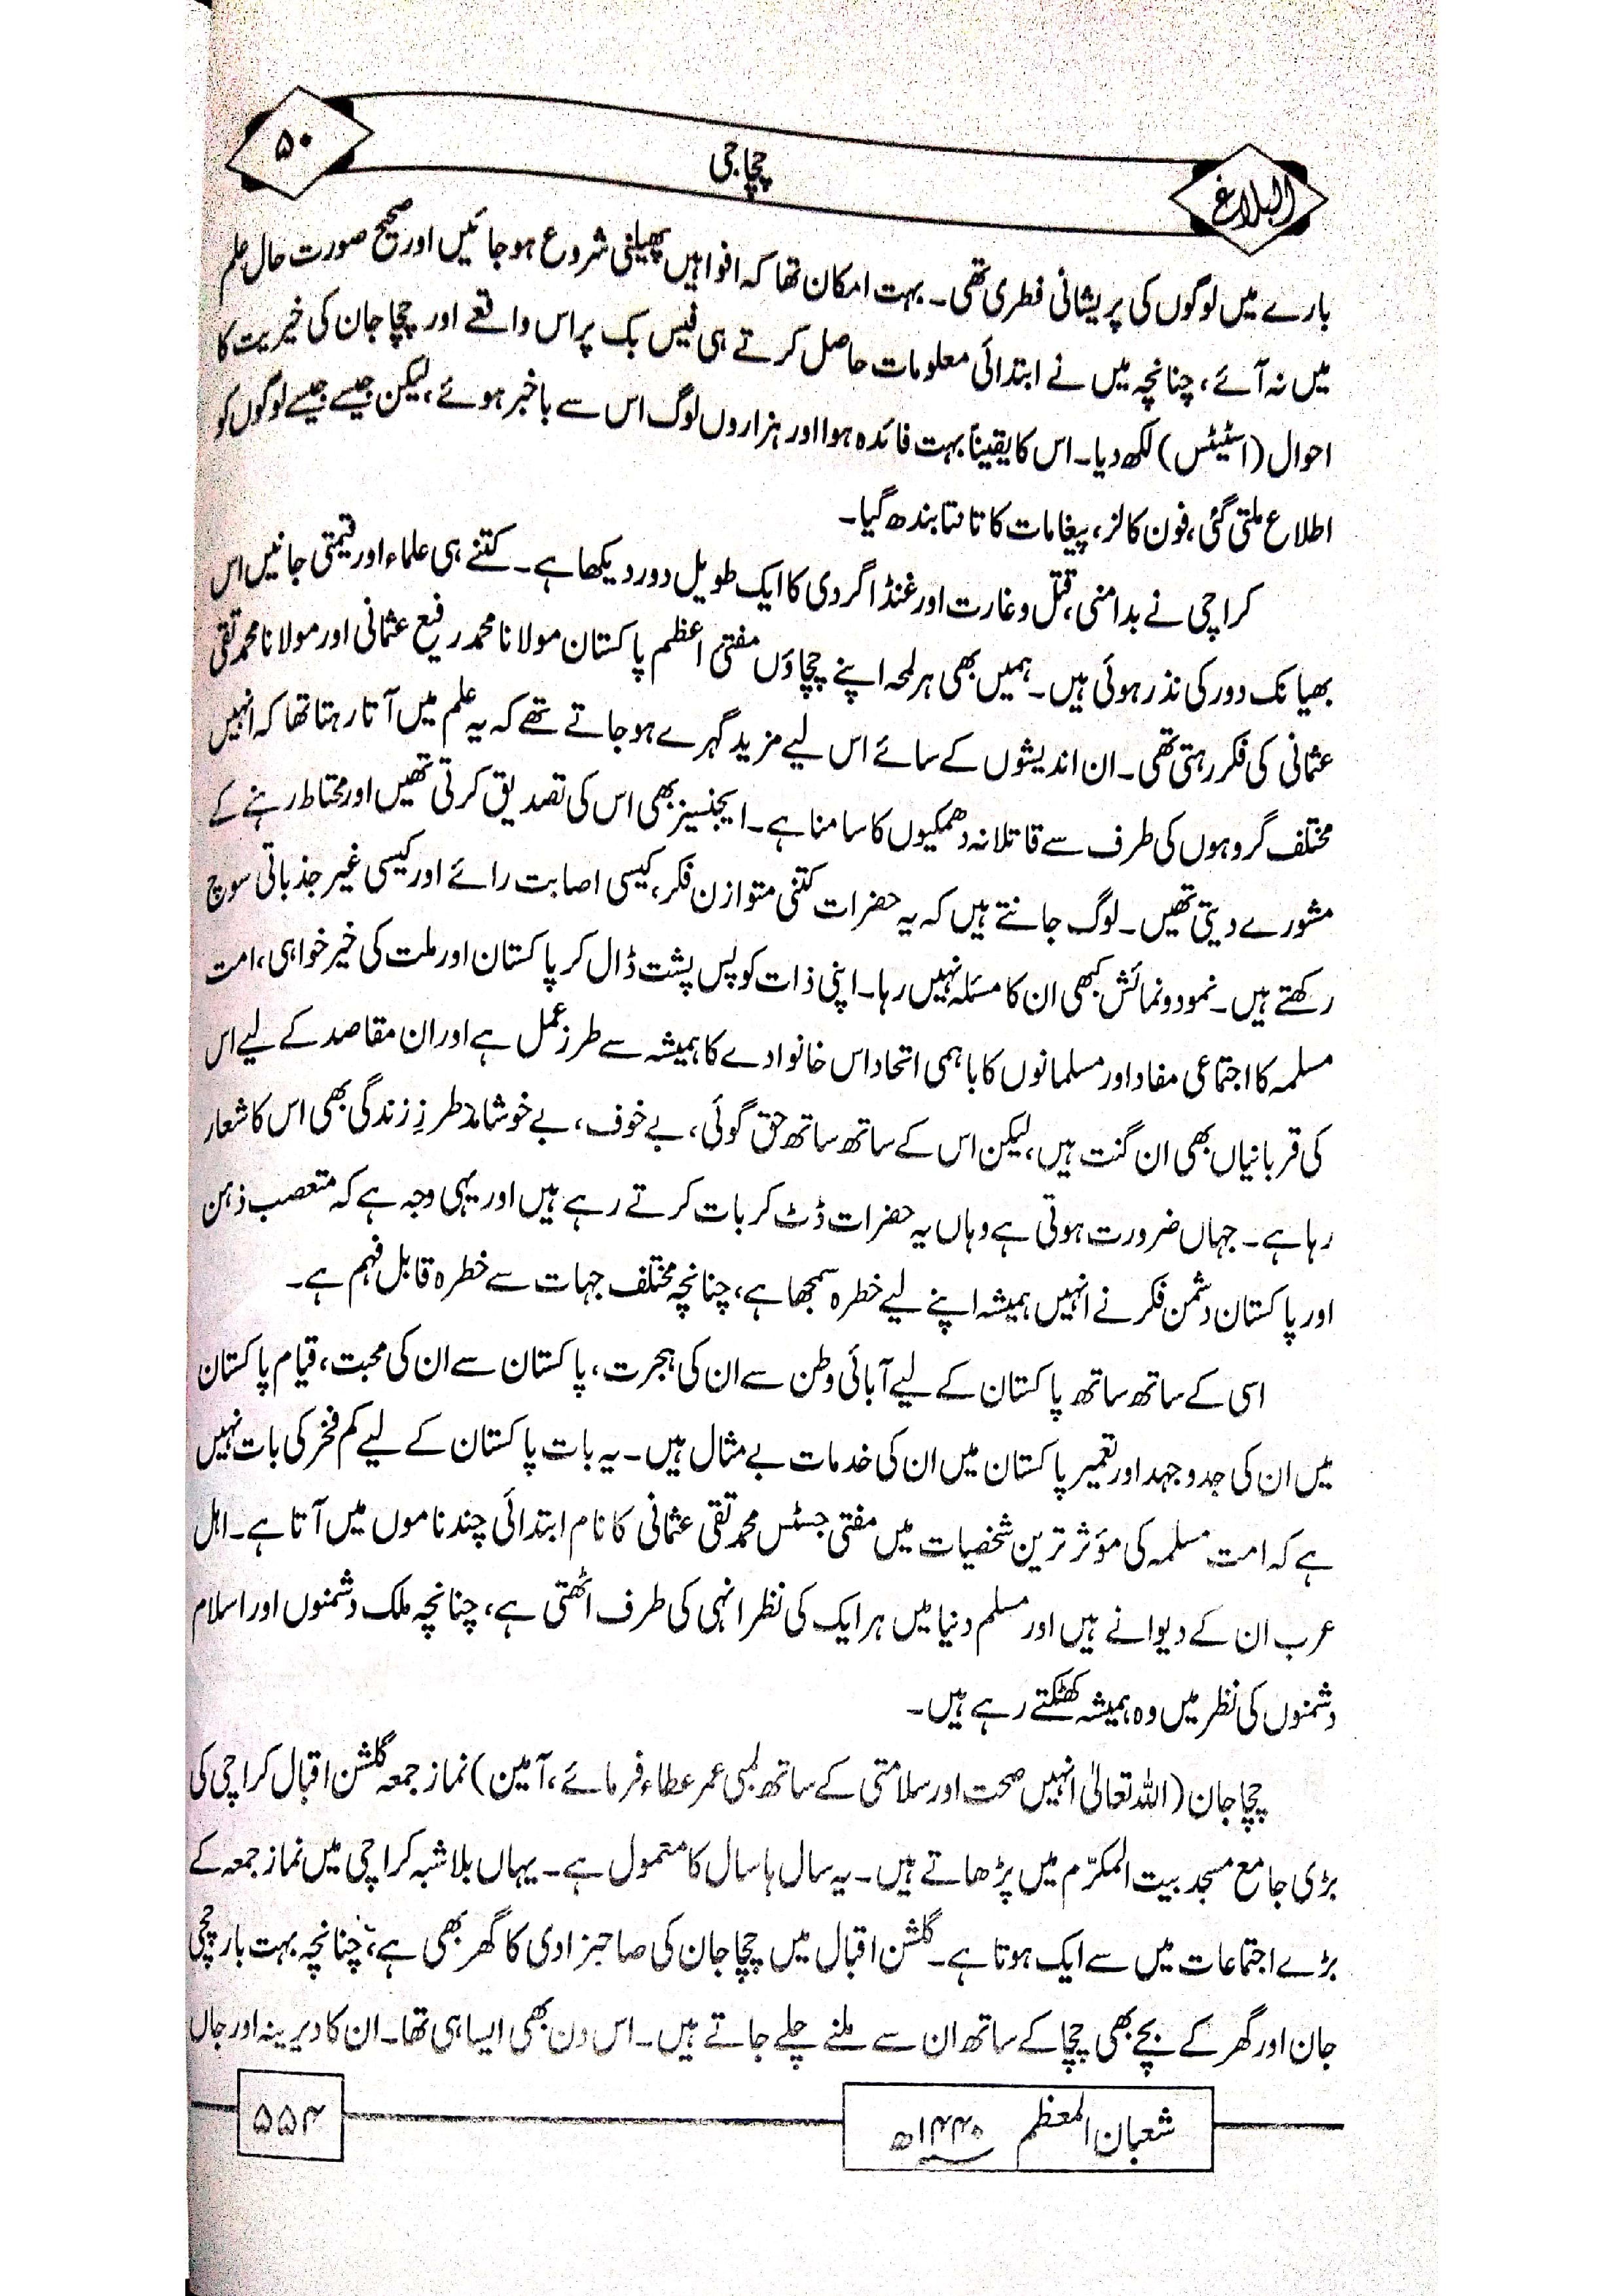 البلاغ
چچا جی
۵۰
بارے میں لوگوں کی پریشانی فطری تھی۔ بہت امکان تھا کہ افواہیں پھیلنی شروع ہوجائیں اور صحیح صورت حال علم
میں نہ آئے، چنانچہ میں نے ابتدائی معلومات حاصل کرتے ہی فیس بک پر اس واقعے اور چچا جان کی خیریت کا
احوال (اسٹیٹس) لکھ دیا۔ اس کا یقیناً بہت فائدہ ہوا اور ہزاروں لوگ اس سے باخبر ہوئے، لیکن جیسے جیسے لوگوں کو
اطلاع ملتی گئی، فون کالز، پیغامات کا تانتا بندھ گیا۔
کراچی نے بدامنی، قتل و غارت اور غنڈا گردی کا ایک طویل دور دیکھا ہے۔ کتنے ہی علماء اور قیمتی جانیں اس
بھیانک دور کی نذر ہوئی ہیں۔ ہمیں بھی ہر لمحہ اپنے چچاؤں مفتیٔ اعظم پاکستان مولانا محمد رفیع عثمانی اور مولانا محمد تقی
عثمانی کی فکر رہتی تھی۔ ان اندیشوں کے سائے اس لیے مزید گہرے ہوجاتے تھے کہ یہ علم میں آتا رہتا تھا کہ انہیں
مختلف گروہوں کی طرف سے قاتلانہ دھمکیوں کا سامنا ہے۔ ایجنسیز بھی اس کی تصدیق کرتی تھیں اور محتاط رہنے کے
مشورے دیتی تھیں۔ لوگ جانتے ہیں کہ یہ حضرات کتنی متوازن فکر، کیسی اصابت رائے اور کیسی غیر جذباتی سوچ
رکھتے ہیں۔ نمود و نمائش کبھی ان کا مسئلہ نہیں رہا۔ اپنی ذات کو پس پشت ڈال کر پاکستان اور ملت کی خیر خواہی، امت
مسلمہ کا اجتماعی مفاد اور مسلمانوں کا باہمی اتحاد اس خانوادے کا ہمیشہ سے طرز عمل ہے اور ان مقاصد کے لیے اس
کی قربانیاں بھی ان گنت ہیں، لیکن اس کے ساتھ ساتھ حق گوئی، بے خوف، بے خوشامد طرزِ زندگی بھی اس کا شعار
رہا ہے۔ جہاں ضرورت ہوتی ہے وہاں یہ حضرات ڈٹ کر بات کرتے رہے ہیں اور یہی وجہ ہے کہ متعصب ذہن
اور پاکستان دشمن فکر نے انہیں ہمیشہ اپنے لیے خطرہ سمجھا ہے، چنانچہ مختلف جہات سے خطرہ قابل فہم ہے۔
اسی کے ساتھ ساتھ پاکستان کے لیے آبائی وطن سے ان کی ہجرت، پاکستان سے ان کی محبت، قیام پاکستان
میں ان کی جدوجہد اور تعمیر پاکستان میں ان کی خدمات بے مثال ہیں۔ یہ بات پاکستان کے لیے کم فخر کی بات نہیں
ہے کہ امت مسلمہ کی مؤثر ترین شخصیات میں مفتی جسٹس محمد تقی عثمانی کا نام ابتدائی چند ناموں میں آتا ہے۔ اہل
عرب ان کے دیوانے ہیں اور مسلم دنیا میں ہر ایک کی نظر انہی کی طرف اٹھتی ہے، چنانچہ ملک دشمنوں اور اسلام
دشمنوں کی نظر میں وہ ہمیشہ کھٹکتے رہے ہیں۔
چچا جان (اللہ تعالیٰ انہیں صحت اور سلامتی کے ساتھ لمبی عمر عطاء فرمائے، آمین) نماز جمعہ گلشن اقبال کراچی کی
بڑی جامع مسجد بیت المکرّم میں پڑھاتے ہیں۔ یہ سال ہا سال کا معمول ہے۔ یہاں بلاشبہ کراچی میں نماز جمعہ کے
بڑے اجتماعات میں سے ایک ہوتا ہے۔ گلشن اقبال میں چچا جان کی صاحبزادی کا گھر بھی ہے، چنانچہ بہت بار چچی
جان اور گھر کے بچے بھی چچا کے ساتھ ان سے ملنے چلے جاتے ہیں۔ اس دن بھی ایسا ہی تھا۔ ان کا دیرینہ اور جاں
شعبان المعظم ۱۴۴۰ھ
۵۵۴